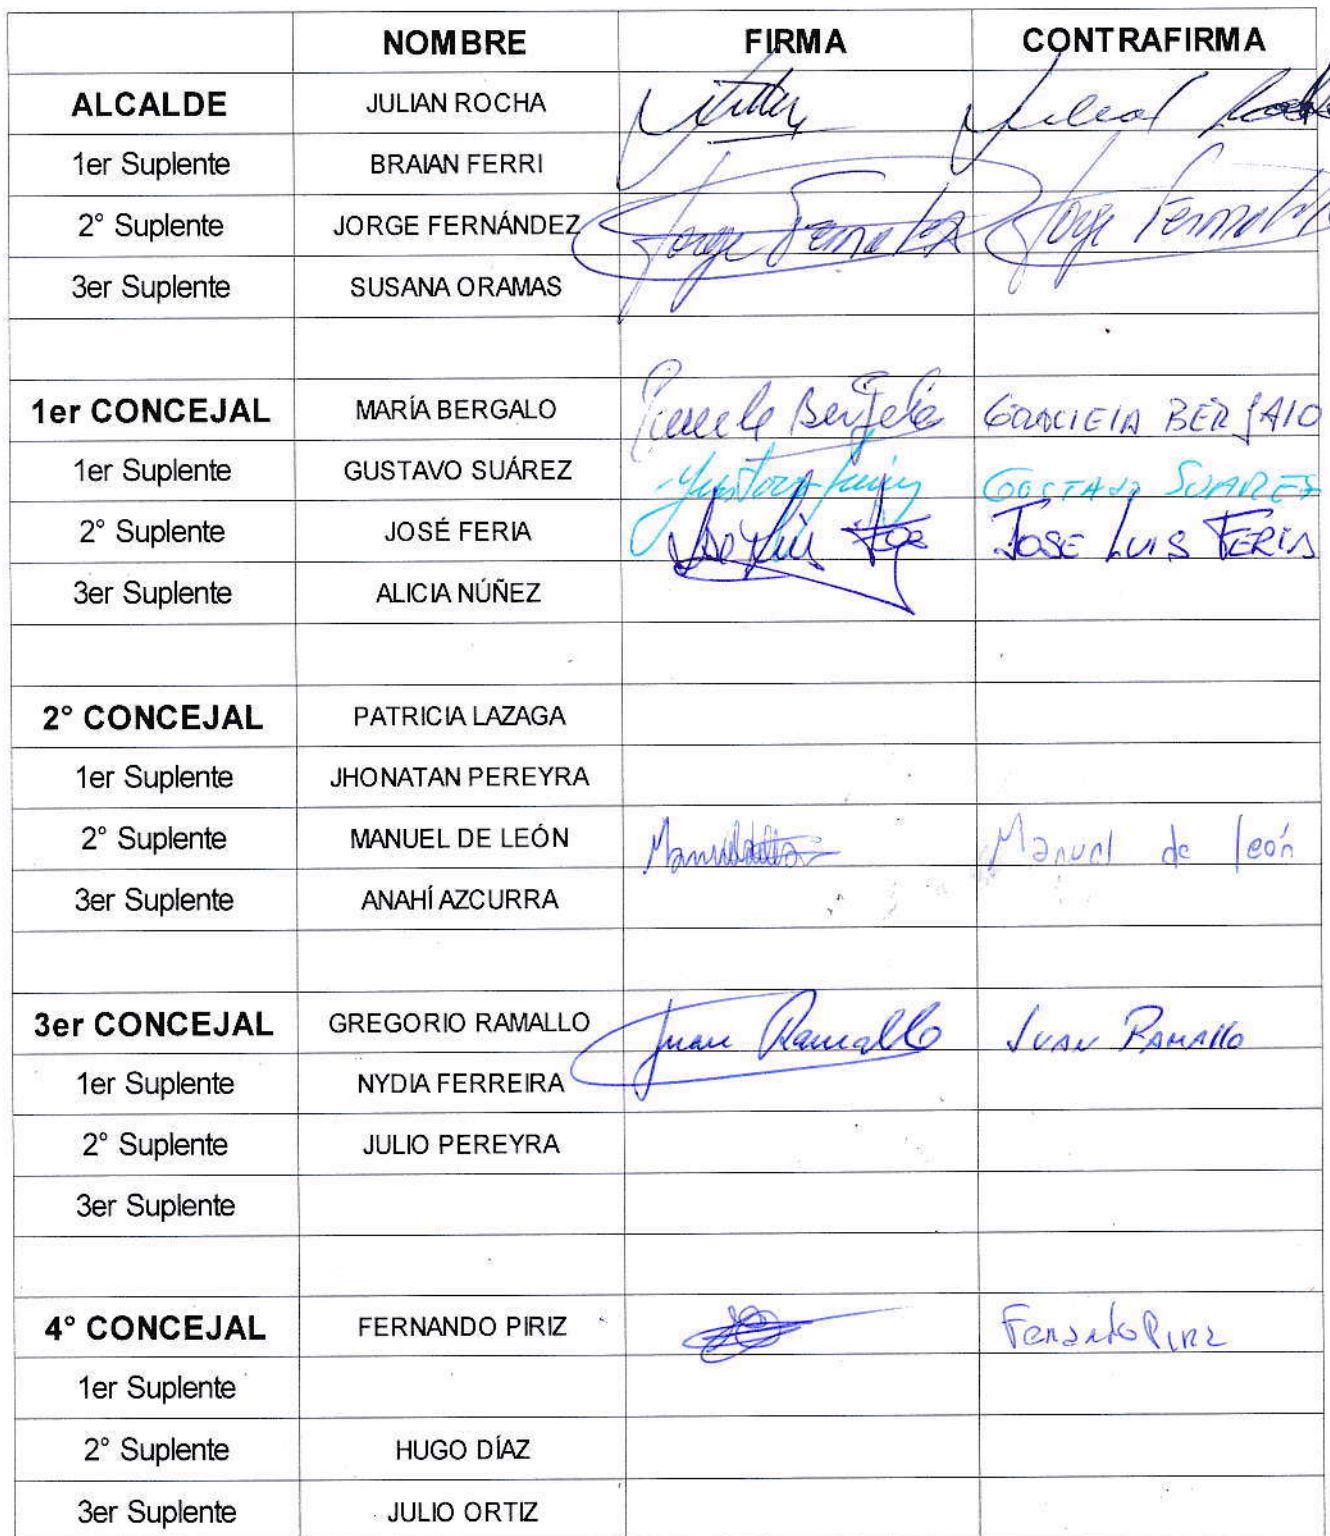 NOMBRE FIRMA CONTRAFIRMA
ALCALDE JULIAN ROCHA
1er Suplente BRAIAN FERRI
2° Suplente JORGE FERNÁNDEZ Jorge Jorge
3er Suplente SUSANA ORAMAS
1er CONCEJAL MARÍA BERGALO GRACIELA BERGALO
1er Suplente GUSTAVO SUÁREZ GUSTAVO SUAREZ
2° Suplente JOSÉ FERIA JOSE LUIS FERIA
3er Suplente ALICIA NÚÑEZ
2° CONCEJAL PATRICIA LAZAGA
1er Suplente JHONATAN PEREYRA
2° Suplente MANUEL DE LEÓN Manuel de león
3er Suplente ANAHÍ AZCURRA
3er CONCEJAL GREGORIO RAMALLO Juan Ramallo JUAN RAMALLO
1er Suplente NYDIA FERREIRA
2° Suplente JULIO PEREYRA
3er Suplente
4° CONCEJAL FERNANDO PIRIZ Fernando Piriz
1er Suplente
2° Suplente HUGO DÍAZ
3er Suplente JULIO ORTIZ